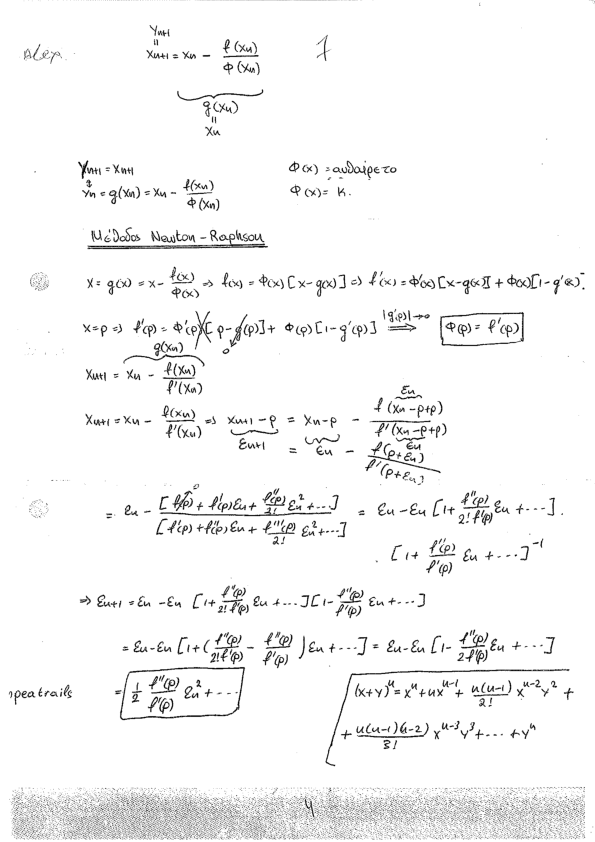 Yn+1
=
Alex. Xn+1 = Xn - f(Xn)/Φ(Xn) 7
g(Xn)
=
Xn
Yn+1 = Xn+1 Φ(x) = αυθαίρετο
Yn = g(Xn) = Xn - f(Xn)/Φ(Xn) Φ(x) = K.
Μέθοδος Newton-Raphson
X = g(x) = x - f(x)/Φ(x) => f(x) = Φ(x) [x-g(x)] => f'(x) = Φ'(x) [x-g(x)] + Φ(x) [1-g'(x)].
x=p => f'(p) = Φ'(p) [p-g(p)] + Φ(p) [1-g'(p)] |g'(p)|→0 ==> Φ(p) = f'(p)
0
g(Xn)
Xn+1 = Xn - f(Xn)/f'(Xn)
Xn+1 = Xn - f(Xn)/f'(Xn) => Xn+1 - p = Xn-p - f(Xn-p+p)/f'(Xn-p+p)
εn εn
εn+1 = εn - f(p+εn)/f'(p+εn)
= εn - [f(p) + f'(p)εn + f''(p)/2! εn² + ...]/[f'(p) + f''(p)εn + f'''(p)/2! εn² + ...] = εn - εn [1 + f''(p)/2!f'(p) εn + ...] .
. [1 + f''(p)/f'(p) εn + ...]⁻¹
=> εn+1 = εn - εn [1 + f''(p)/2!f'(p) εn + ...] [1 - f''(p)/f'(p) εn + ...]
= εn - εn [1 + (f''(p)/2!f'(p) - f''(p)/f'(p)) εn + ...] = εn - εn [1 - f''(p)/2f'(p) εn + ...]
npeatrails = 1/2 f''(p)/f'(p) εn² + ...
(x+y)ⁿ = xⁿ + nxⁿ⁻¹ + n(n-1)/2! xⁿ⁻²y² +
+ n(n-1)(n-2)/3! xⁿ⁻³y³ + ... + yⁿ
4